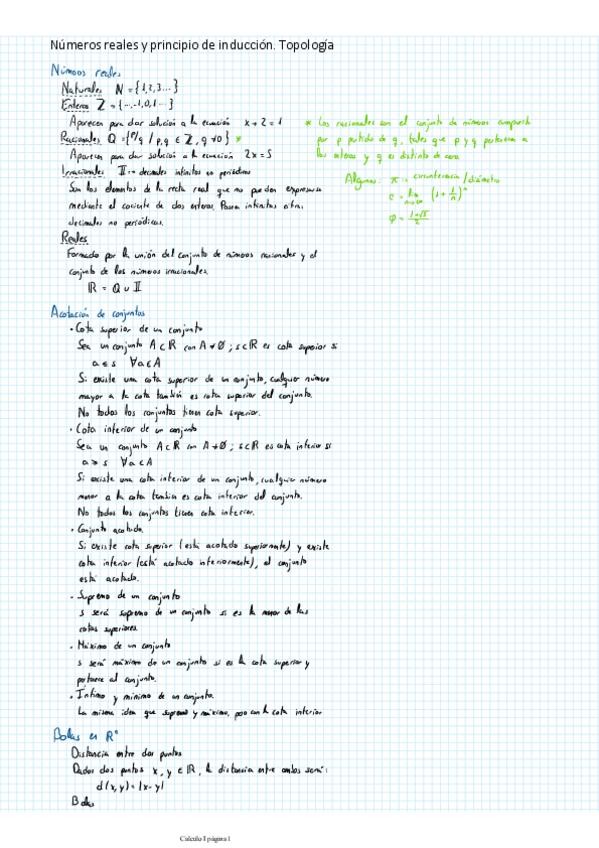 Números reales y principio de inducción. Topología
Números reales
Naturales N = {1,2,3...}
Enteros Z = {...-1,0,1...}
Aparecen para dar solución a la ecuación x + 2 = 1
Racionales Q = {p/q / p,q ∈ Z, q ≠ 0} *
Aparecen para dar solución a la ecuación 2x = 5
Irracionales II → decimales infinitos no periódicos
Son los elementos de la recta real que no pueden expresarse
mediante el cociente de dos enteros. Poseen infinitas cifras
decimales no periódicas.
Reales
Formado por la unión del conjunto de números racionales y el
conjunto de los números irracionales.
R = Q ∪ II
* Los racionales son el conjunto de números compuesto
por p partido de q, tales que p y q pertenecen a
los enteros y q es distinto de cero
Algunos: π → circunferencia/diámetro
e = lim n→∞ (1 + 1/n)^n
φ = 1+√5/2
Acotación de conjuntos
· Cota superior de un conjunto
Sea un conjunto A ⊂ R con A ≠ Ø ; s ∈ R es cota superior si
a ≤ s ∀a ∈ A
Si existe una cota superior de un conjunto, cualquier número
mayor a la cota también es cota superior del conjunto.
No todos los conjuntos tienen cota superior.
· Cota inferior de un conjunto
Sea un conjunto A ⊂ R con A ≠ Ø ; s ∈ R es cota inferior si
a ≥ s ∀a ∈ A
Si existe una cota inferior de un conjunto, cualquier número
menor a la cota también es cota inferior del conjunto.
No todos los conjuntos tienen cota inferior.
· Conjunto acotado.
Si existe cota superior (está acotado superiormente) y existe
cota inferior (está acotado inferiormente), el conjunto
está acotado.
· Supremo de un conjunto
s será supremo de un conjunto si es la menor de las
cotas superiores.
· Máximo de un conjunto
s será máximo de un conjunto si es la cota superior y
pertenece al conjunto.
· Ínfimo y mínimo de un conjunto.
La misma idea que supremo y máximo, pero con la cota inferior
Bolas en Rⁿ
Distancia entre dos puntos
Dados dos puntos x, y ∈ R, la distancia entre ambos será:
d(x,y) = |x-y|
Bolas
Calculo I página 1